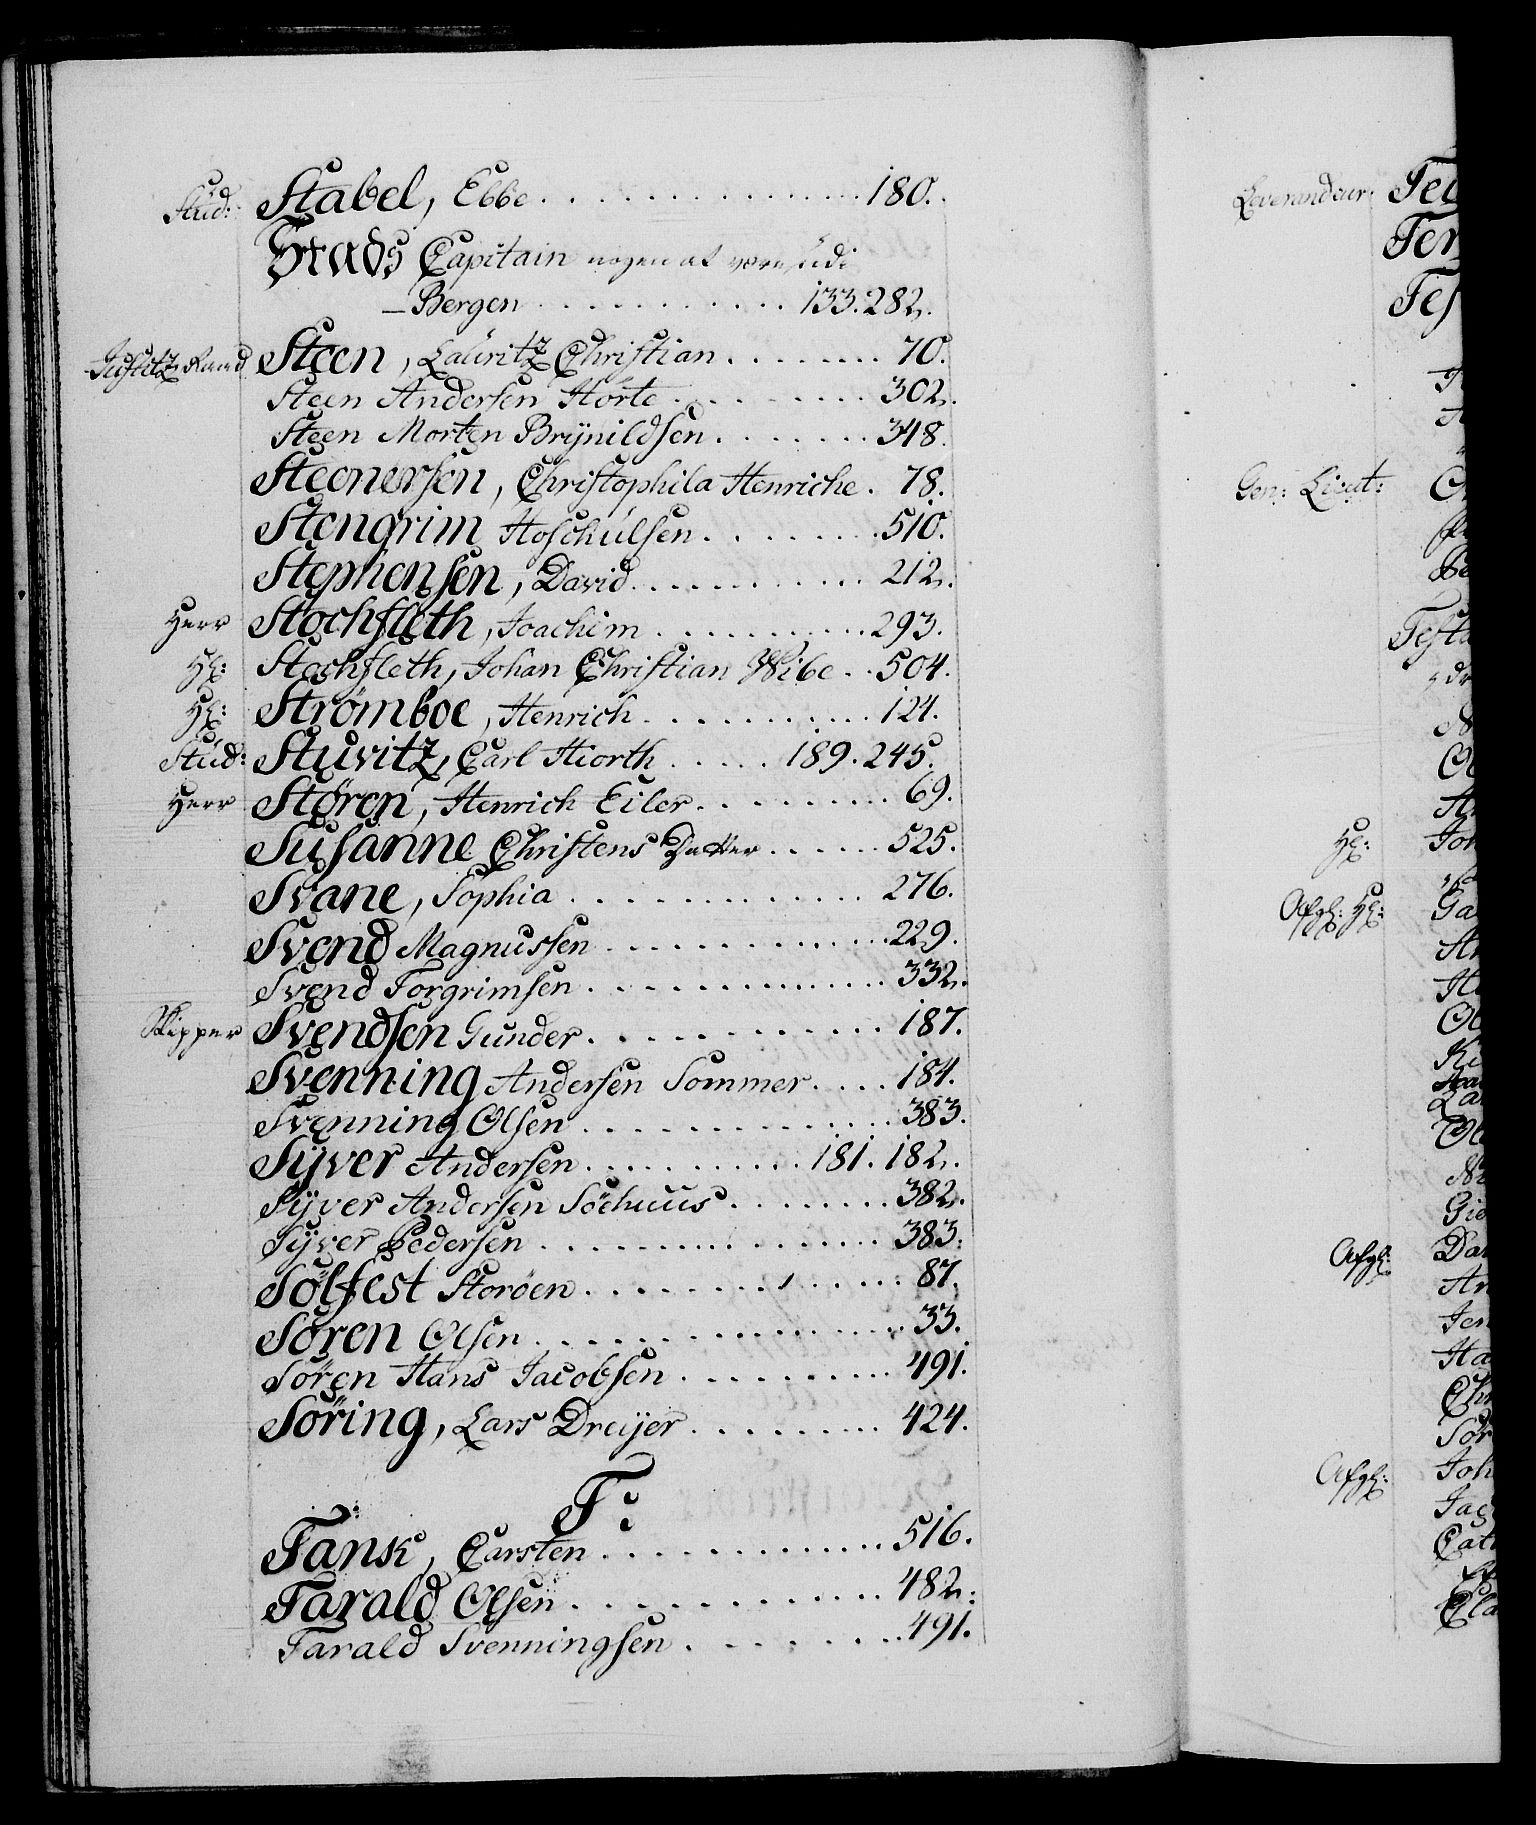 Stud: Stabel, Ebbe . . . . . . . . . . . . . . . 180.
Stads Capitain nogen at være udi
— Bergen . . . . . . . . . . . . 133. 282.
Justitz Raad Steen, Lauritz Christian . . . . . . . . 70.
Steen Andersen Horte . . . . . . . . . . 302.
Steen Morten Brÿnildsen . . . . . . . 348.
Steenersen, Christophila Henriche . 78.
Stengrim Hoschulsen . . . . . . . . 510.
Stephensen, David . . . . . . . . . . . 212.
Herr Stochfleth, Joachim . . . . . . . . . . 293.
Hr: Stochfleth, Johan Christian Wibe . . 504.
Hr: Strømboe, Henrich . . . . . . . . . . . 124.
Stud: Stuvitz, Carl Hiorth . . . . . 189. 245.
Herr Støren, Henrich Eiler . . . . . . . . . 69.
Susanne Christens Datter . . . . . . 525.
Svane, Sophia . . . . . . . . . . . . . 276.
Svend Magnussen . . . . . . . . . . . . 229.
Svend Torgrimsen . . . . . . . . . . . . 332.
Skipper Svendsen Gunder . . . . . . . . . . . 187.
Svenning Andersen Sommer . . . . 184.
Svenning Olsen . . . . . . . . . . . . . 383.
Sÿver Andersen . . . . . . . . . . 181. 182.
Sÿver Andersen Söehuus . . . . . . . . 382.
Sÿver Pedersen . . . . . . . . . . . . . . 383.
Sölfest Storöen . . . . . . . . . . . . . 87.
Sören Olsen . . . . . . . . . . . . . . . 33.
Sören Hans Jacobsen . . . . . . . . . . 491.
Söring, Lars Dreÿer . . . . . . . . . 424.
T:
Tank, Carsten . . . . . . . . . . . . . 516.
Tarald Olsen . . . . . . . . . . . . . 482.
Tarald Svenningsen . . . . . . . . 491.
Leverandeur:
Gen: Lieut:
Hr:
Afg: Hr:
Afg:
Afg: